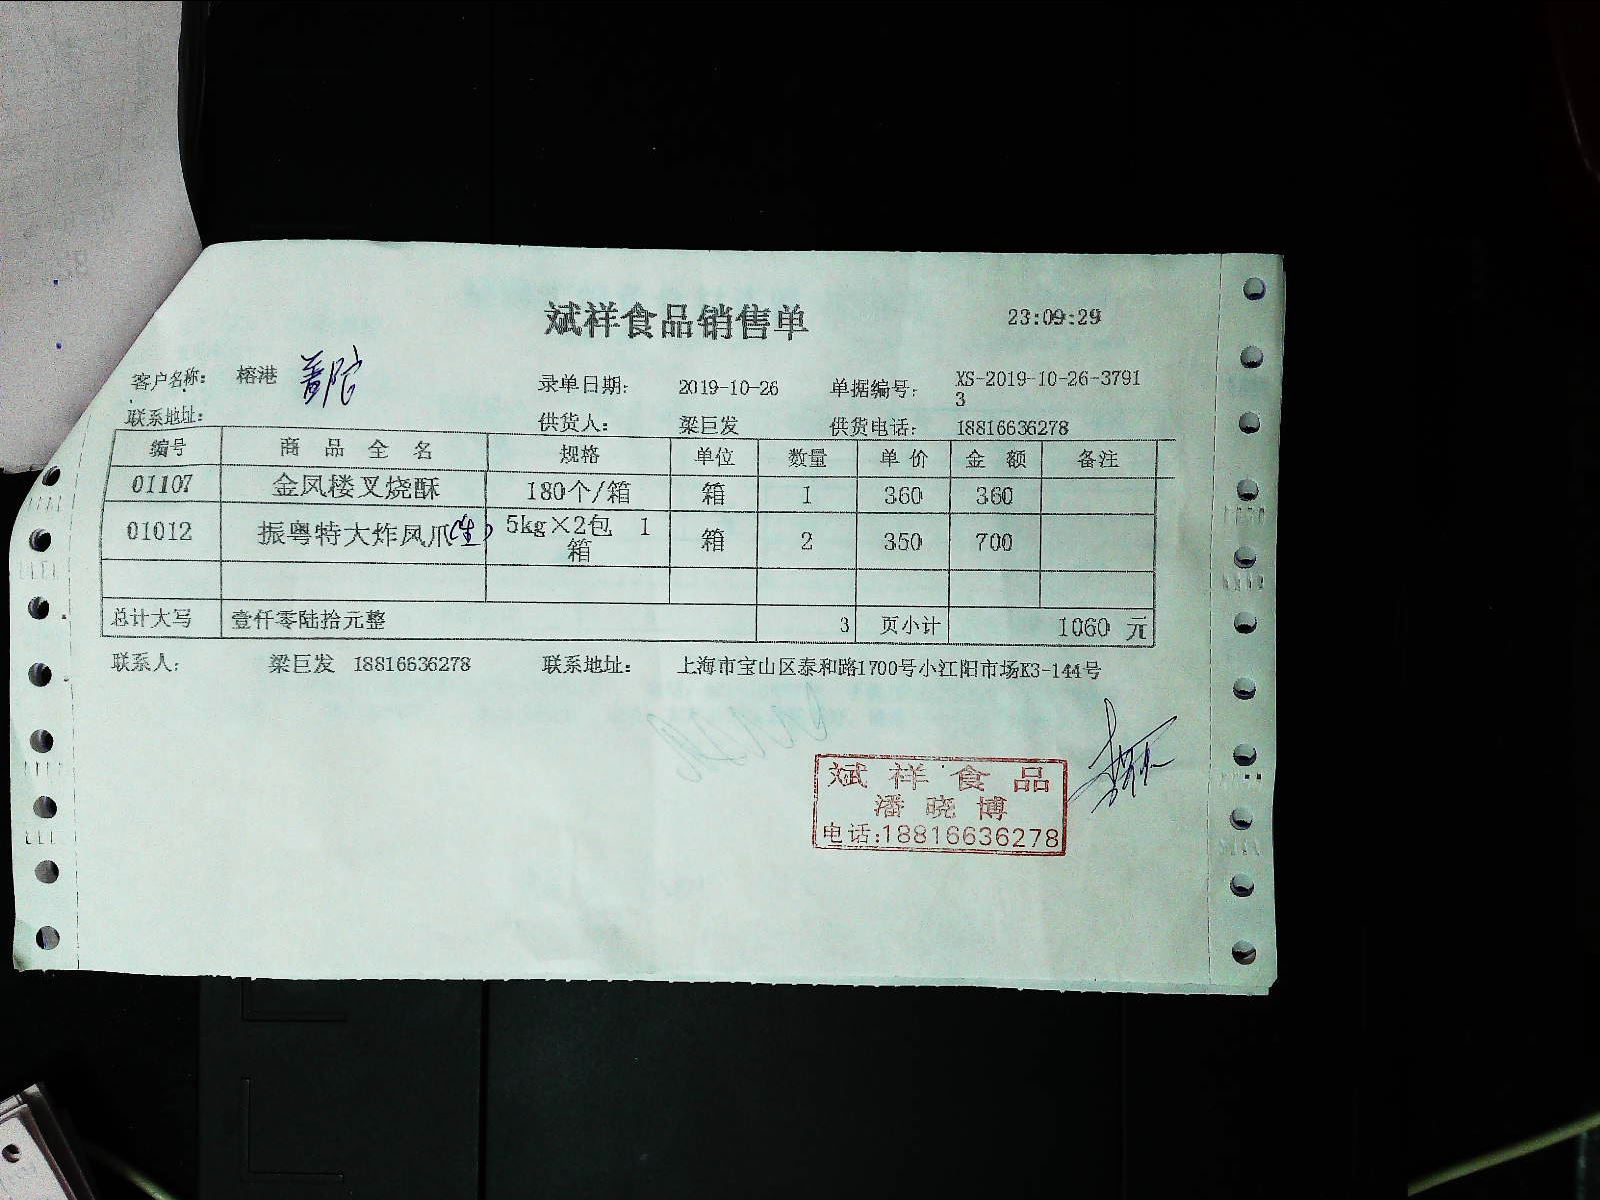 斌祥食品销售单 23:09:29
客户名称： 榕港 普陀 录单日期： 2019-10-26 单据编号： XS-2019-10-26-3791
3
联系地址： 供货人： 梁巨发 供货电话： 18816636278
编号 商品全名 规格 单位 数量 单价 金额 备注
01107 金凤楼叉烧酥 180个/箱 箱 1 360 360
01012 振粤特大炸凤爪(生) 5kg×2包 1
箱 箱 2 350 700
总计大写 壹仟零陆拾元整 3 页小计 1060 元
联系人： 梁巨发 18816636278 联系地址： 上海市宝山区泰和路1700号小江阳市场K3-144号
斌祥食品
潘晓博
电话:18816636278